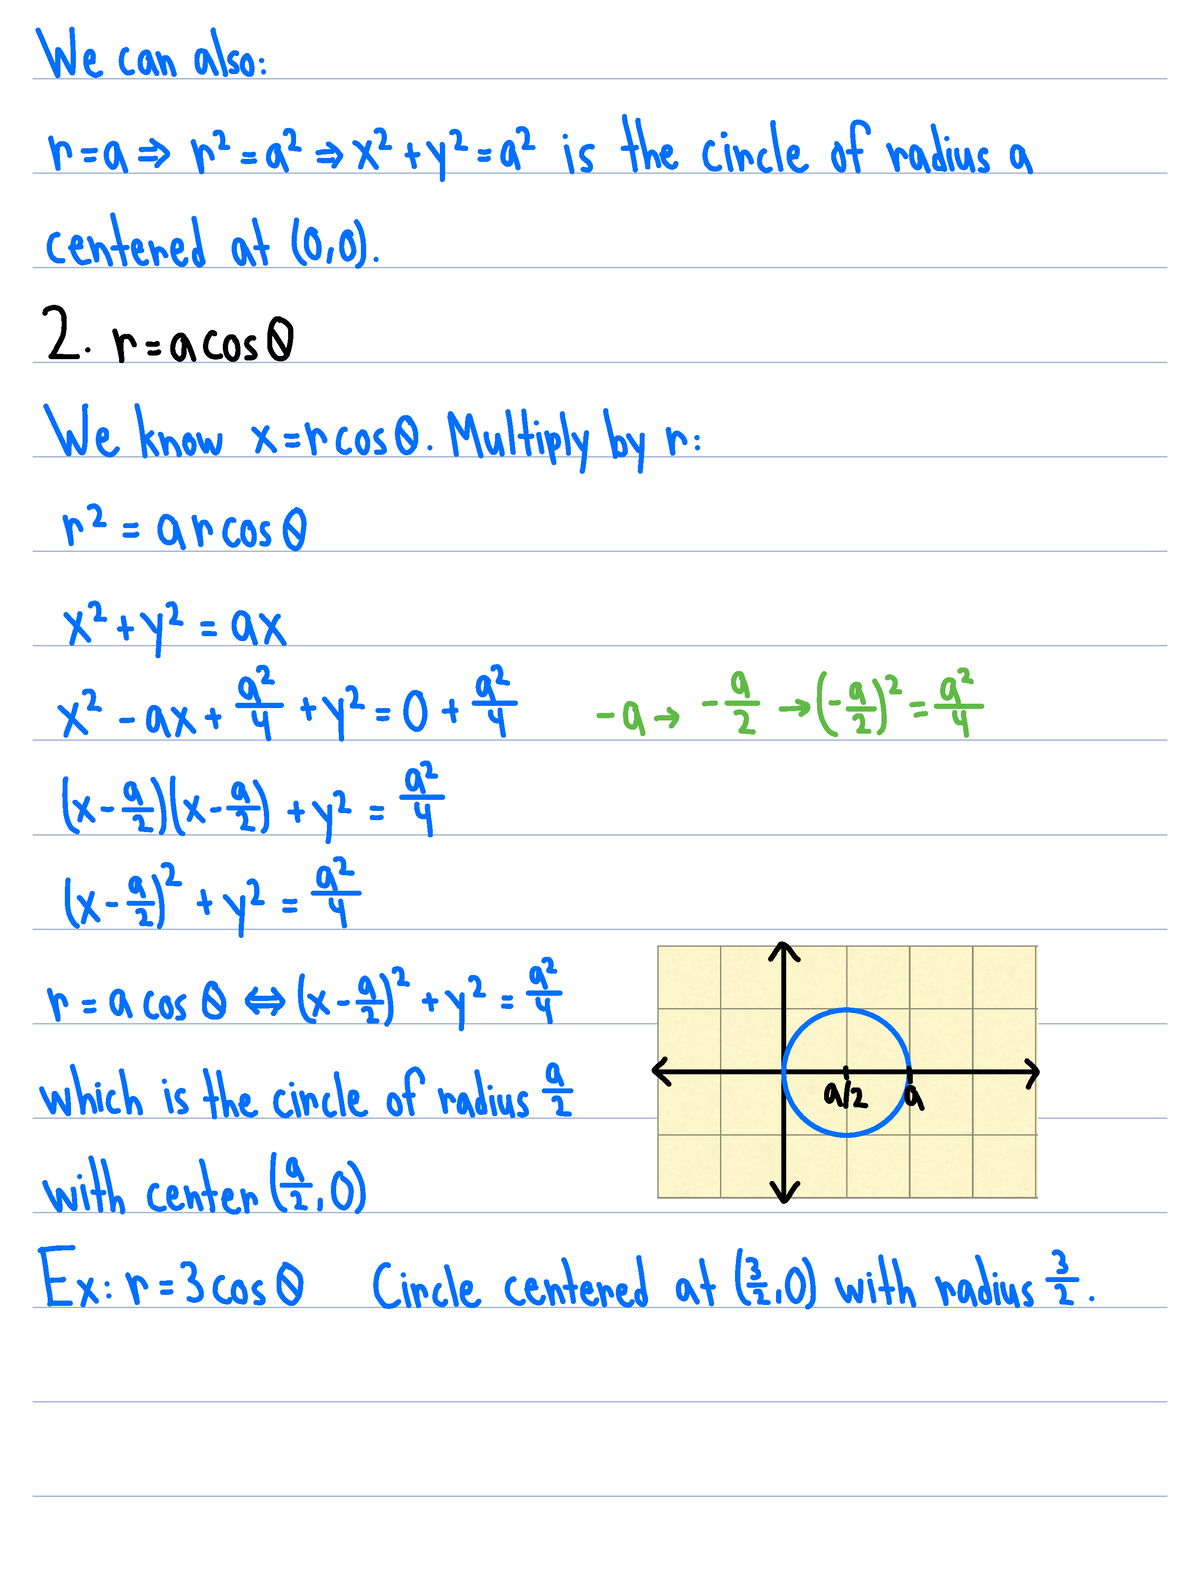 We can also:
r=a ⇒ r²=a² ⇒ x²+y²=a² is the circle of radius a
centered at (0,0).
2. r=acosθ
We know x=rcosθ. Multiply by r:
r² = arcosθ
x²+y² = ax
x² - ax + a²/4 + y² = 0 + a²/4 -a → -a/2 → (-a/2)² = a²/4
(x-a/2)(x-a/2) + y² = a²/4
(x-a/2)² + y² = a²/4
r = a cosθ ⇔ (x-a/2)² + y² = a²/4
which is the circle of radius a/2
a/2 a
with center (a/2,0)
Ex: r=3cosθ Circle centered at (3/2,0) with radius 3/2.